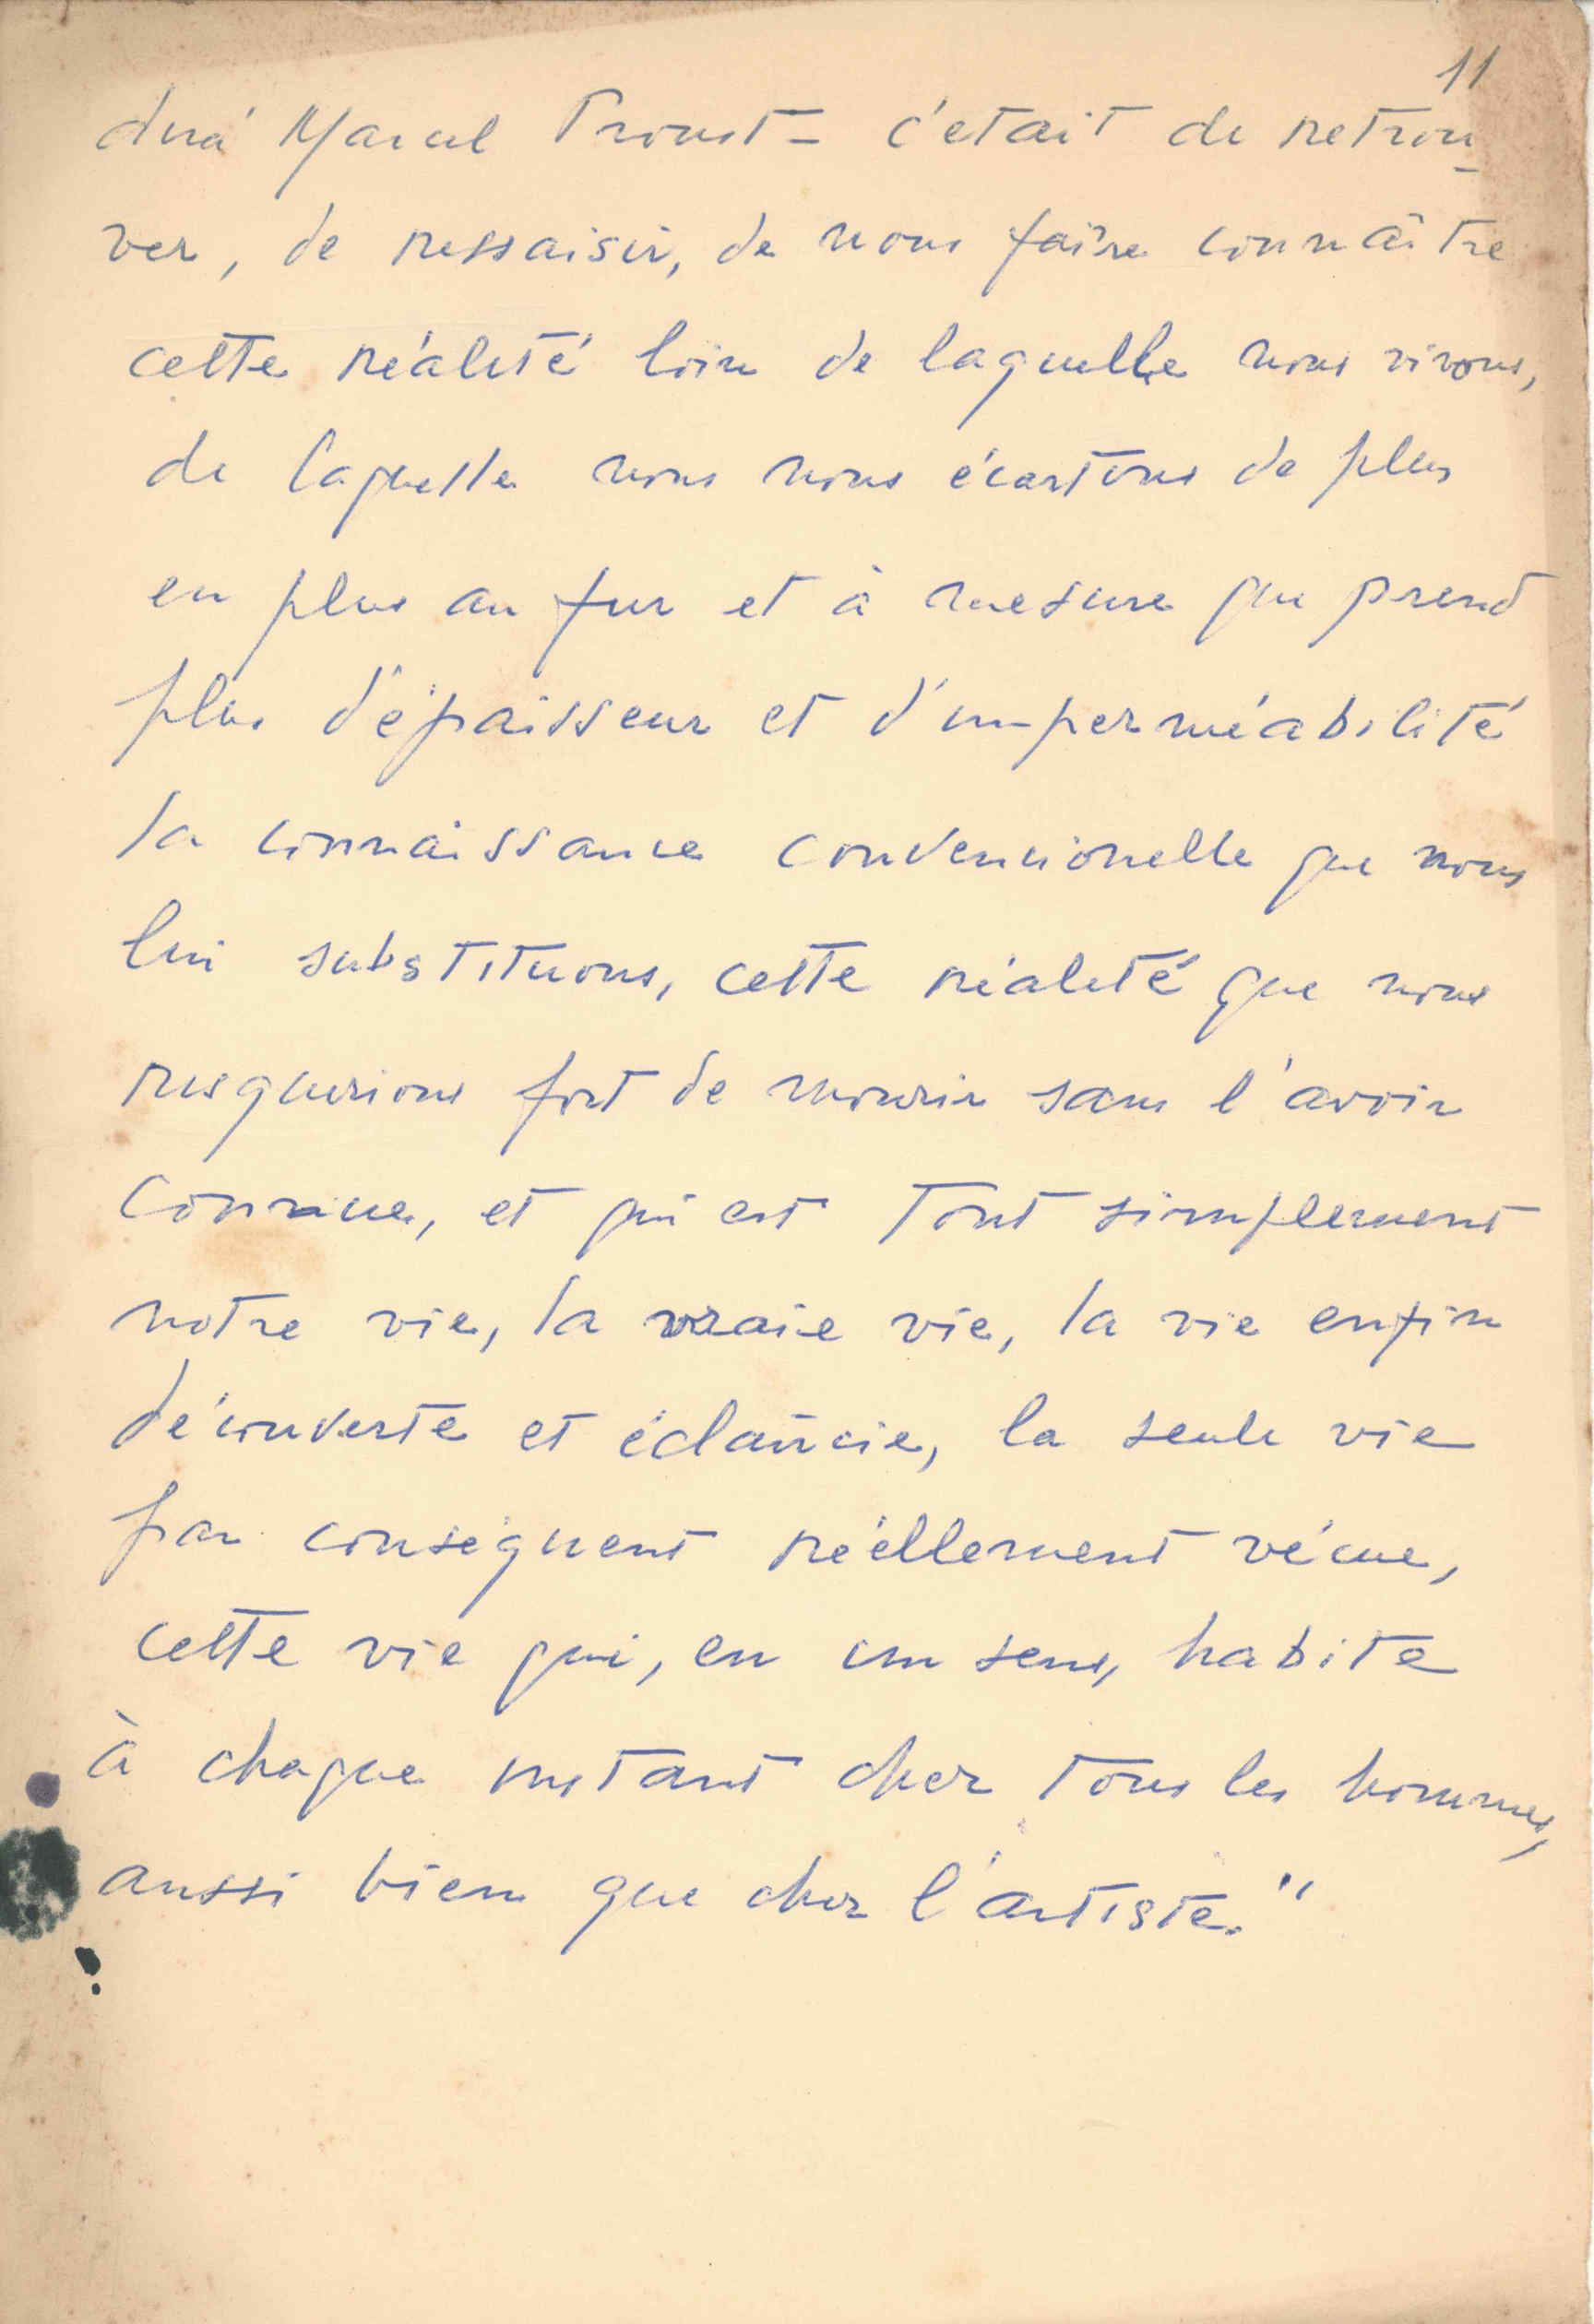 11
dirá Marcel Proust – c'etait de retrou-
ver, de ressaisir, de nous faire connaître
cette réalité loin de laquelle nous vivons,
de laquelle nous nous écartons de plus
en plus au fur et à mesure que prend
plus d'épaisseur et d'imperméabilité
la connaissance convencionelle que nous
lui substituons, cette réalité que nous
risquerions fort de mourir sans l'avoir
connue, et qui est tout simplement
notre vie, la vraie vie, la vie enfin
découverte et éclaircie, la seule vie
par conséquent réellement vécue,
cette vie qui, en un sens, habite
à chaque instant chez tous les hommes,
aussi bien que chez l'artiste."